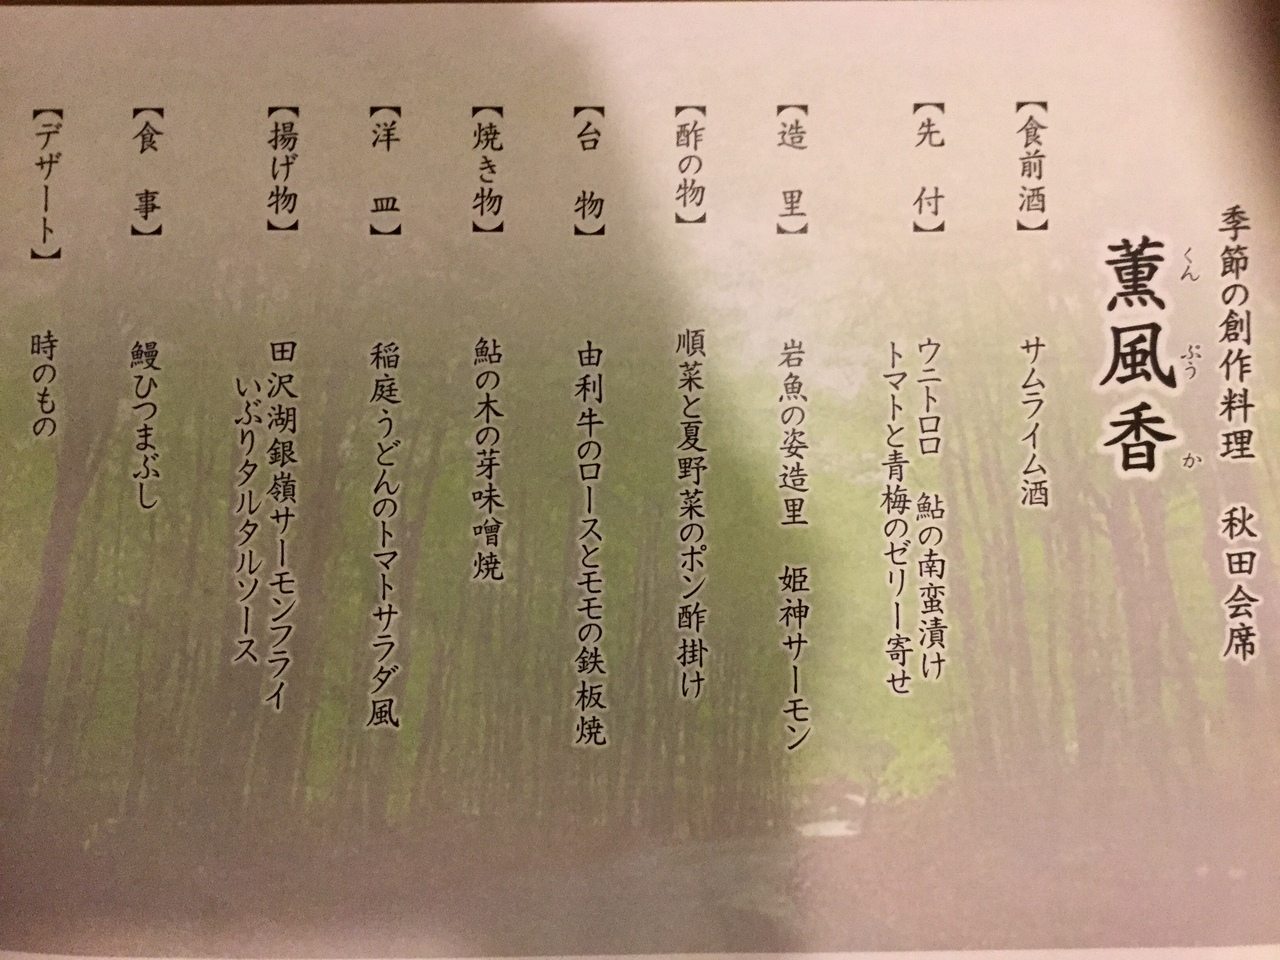 季節の創作料理　秋田会席
薫風香
くん　ぷう　か
【食前酒】　サムライム酒
【先　付】　ウニトロロ　鮎の南蛮漬け
トマトと青梅のゼリー寄せ
【造　里】　岩魚の姿造里　姫神サーモン
【酢の物】　順菜と夏野菜のポン酢掛け
【台　物】　由利牛のロースとモモの鉄板焼
【焼き物】　鮎の木の芽味噌焼
【洋　皿】　稲庭うどんのトマトサラダ風
【揚げ物】　田沢湖銀嶺サーモンフライ
いぶりタルタルソース
【食　事】　鰻ひつまぶし
【デザート】　時のもの